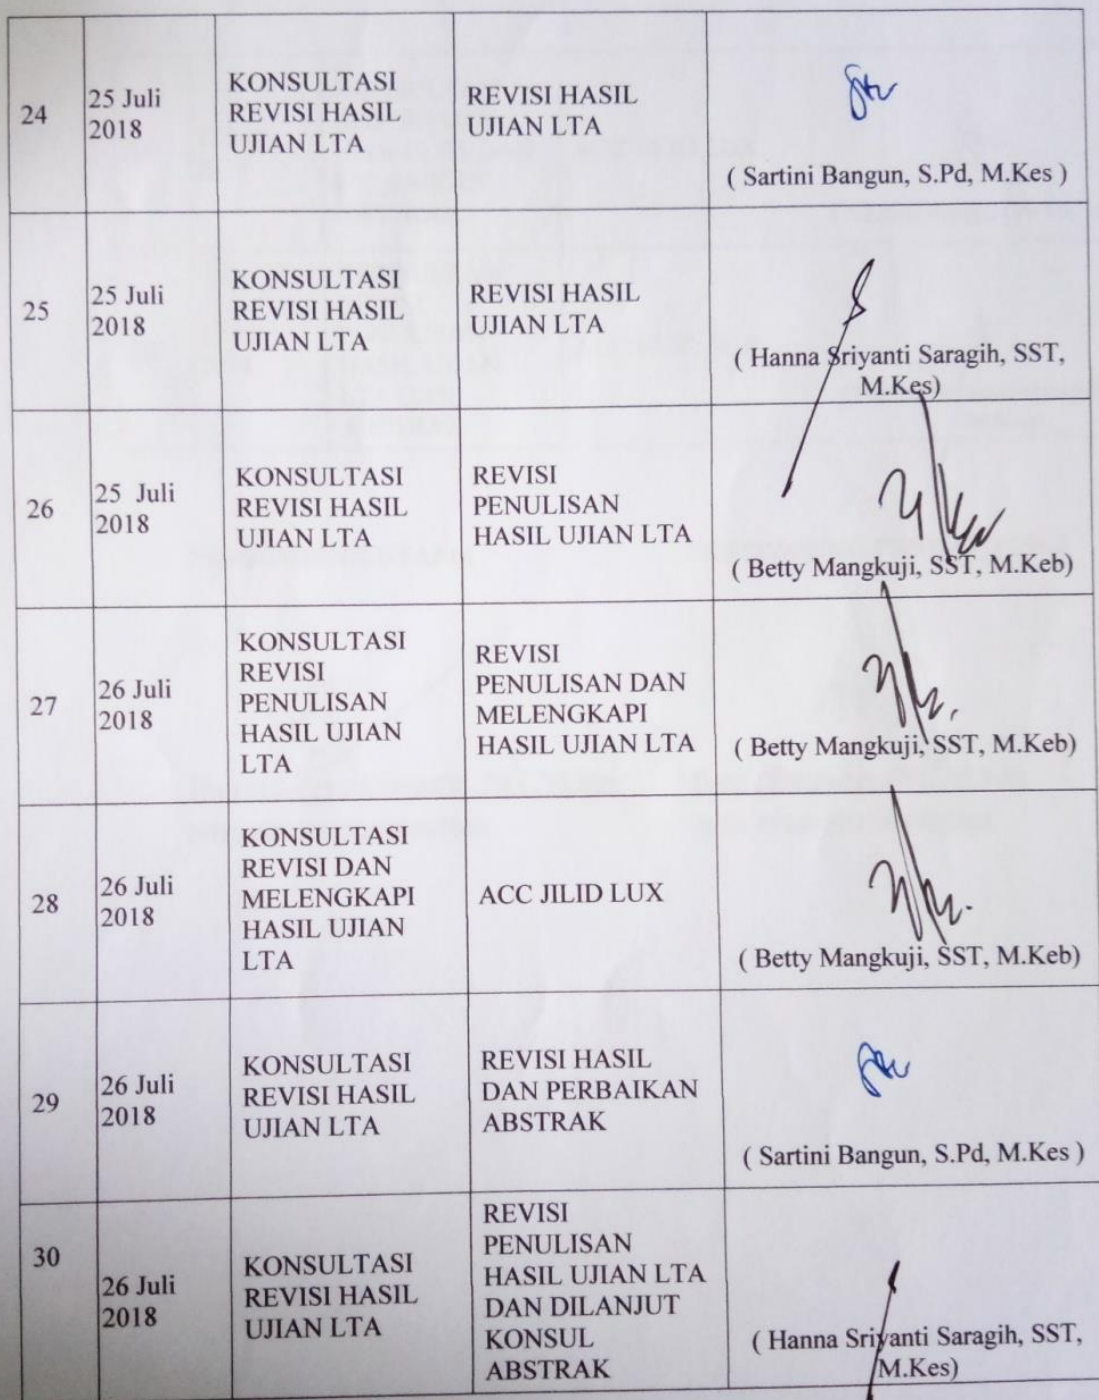 24
25 Juli
2018
KONSULTASI
REVISI HASIL
UJIAN LTA
REVISI HASIL
UJIAN LTA
( Sartini Bangun, S.Pd, M.Kes )
25
25 Juli
2018
KONSULTASI
REVISI HASIL
UJIAN LTA
REVISI HASIL
UJIAN LTA
( Hanna Sriyanti Saragih, SST,
M.Kes)
26
25 Juli
2018
KONSULTASI
REVISI HASIL
UJIAN LTA
REVISI
PENULISAN
HASIL UJIAN LTA
( Betty Mangkuji, SST, M.Keb)
27
26 Juli
2018
KONSULTASI
REVISI
PENULISAN
HASIL UJIAN
LTA
REVISI
PENULISAN DAN
MELENGKAPI
HASIL UJIAN LTA
( Betty Mangkuji, SST, M.Keb)
28
26 Juli
2018
KONSULTASI
REVISI DAN
MELENGKAPI
HASIL UJIAN
LTA
ACC JILID LUX
( Betty Mangkuji, SST, M.Keb)
29
26 Juli
2018
KONSULTASI
REVISI HASIL
UJIAN LTA
REVISI HASIL
DAN PERBAIKAN
ABSTRAK
( Sartini Bangun, S.Pd, M.Kes )
30
26 Juli
2018
KONSULTASI
REVISI HASIL
UJIAN LTA
REVISI
PENULISAN
HASIL UJIAN LTA
DAN DILANJUT
KONSUL
ABSTRAK
( Hanna Sriyanti Saragih, SST,
M.Kes)